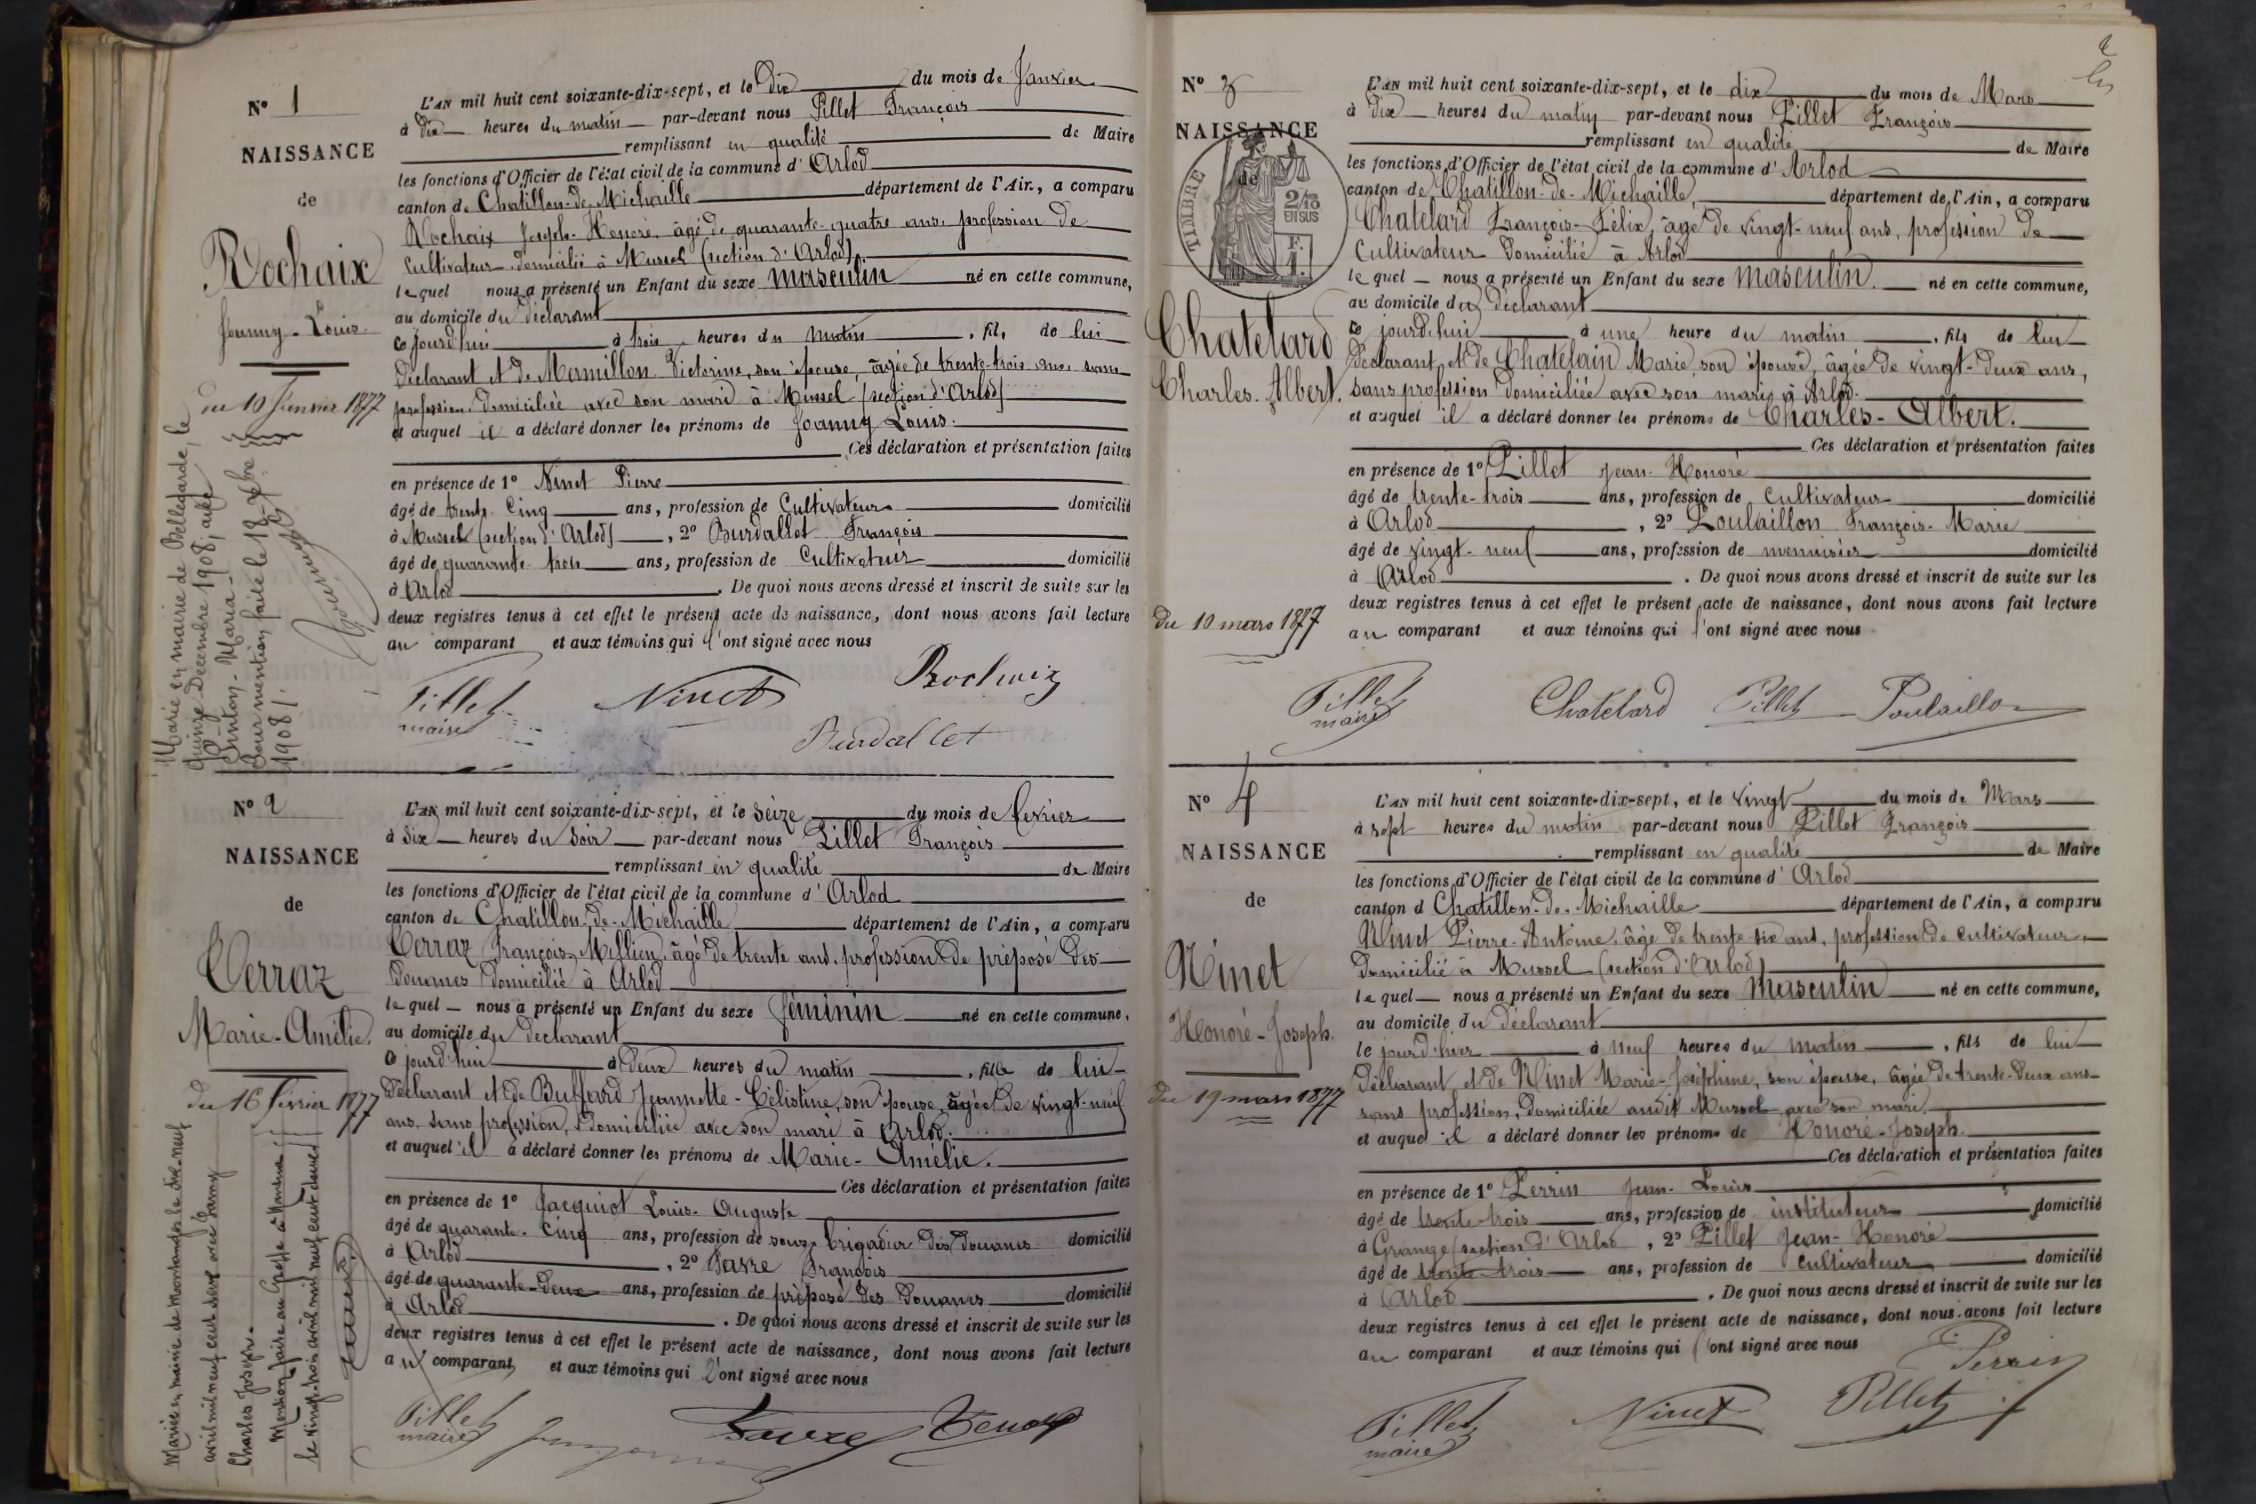 N° 1
NAISSANCE
de
Rochaix
Joanny-Louis
du 10 Janvier 1877
Marié en mairie de Bellegarde, le
quinze Décembre 1908, avec
Pinton-Maria-
Pour mention faite le 18 Xbre
1908/.
L'AN mil huit cent soixante-dix-sept, et le Dix du mois de Janvier
à dix heures du matin par-devant nous Pillet François
remplissant en qualité de Maire
les fonctions d'Officier de l'état civil de la commune d'Arlod
canton de Chatillon-de-Michaille département de l'Ain, a comparu
Rochaix Joseph-Honoré, âgé de quarante-quatre ans, profession de
Cultivateur domicilié à Mussel (section d'Arlod)
lequel nous a présenté un Enfant du sexe masculin né en cette commune,
au domicile du déclarant
ce jourd'hui à trois heures du matin, fils de lui
déclarant et de Mermillon Victorine, son épouse, âgée de trente-trois ans, sans
profession, domiciliée avec son mari à Mussel (section d'Arlod)
et auquel il a déclaré donner les prénoms de Joanny Louis.
Ces déclaration et présentation faites
en présence de 1° Ninet Pierre
âgé de trente-cinq ans, profession de Cultivateur domicilié
à Mussel (section d'Arlod), 2° Burdallet François
âgé de quarante-trois ans, profession de Cultivateur domicilié
à Arlod. De quoi nous avons dressé et inscrit de suite sur les
deux registres tenus à cet effet le présent acte de naissance, dont nous avons fait lecture
au comparant et aux témoins qui l'ont signé avec nous
Pillet
maire
Ninet
Rochaix
Burdallet
N° 2
NAISSANCE
de
Cerraz
Marie-Amélie.
du 16 février 1877
Mariée en mairie de Montanges le dix-neuf
avril mil neuf cent deux avec Famy
Charles Joseph.
Mention faite au Greffe à Nantua
le vingt-trois avril mil neuf cent deux
L'AN mil huit cent soixante-dix-sept, et le seize du mois de février
à six heures du soir par-devant nous Pillet François
remplissant en qualité de Maire
les fonctions d'Officier de l'état civil de la commune d'Arlod
canton de Chatillon-de-Michaille département de l'Ain, a comparu
Cerraz François-Millien, âgé de trente ans, profession de préposé des
Douanes domicilié à Arlod
lequel nous a présenté un Enfant du sexe féminin né en cette commune,
au domicile du déclarant
ce jourd'hui à deux heures du matin, fille de lui
déclarant et de Buffard Jeannette-Célistine, son épouse, âgée de vingt-neuf
ans, sans profession, domiciliée avec son mari à Arlod.
et auquel il a déclaré donner les prénoms de Marie-Amélie.
Ces déclaration et présentation faites
en présence de 1° Jacquiot Louis-Auguste
âgé de quarante-cinq ans, profession de sous-brigadier des douanes domicilié
à Arlod, 2° Favre François
âgé de quarante-deux ans, profession de préposé des Douanes domicilié
à Arlod. De quoi nous avons dressé et inscrit de suite sur les
deux registres tenus à cet effet le présent acte de naissance, dont nous avons fait lecture
au comparant et aux témoins qui l'ont signé avec nous
Pillet
maire
Favre
2
N° 3
NAISSANCE
de
TIMBRE
2/10
EN SUS
F.
1.
Chatelard
Charles-Albert.
du 10 mars 1877
L'AN mil huit cent soixante-dix-sept, et le dix du mois de Mars
à dix heures du matin par-devant nous Pillet François
remplissant en qualité de Maire
les fonctions d'Officier de l'état civil de la commune d'Arlod
canton de Chatillon-de-Michaille, département de l'Ain, a comparu
Chatelard François-Félix, âgé de vingt-neuf ans, profession de
Cultivateur domicilié à Arlod
lequel nous a présenté un Enfant du sexe masculin. né en cette commune,
au domicile du déclarant
ce jourd'hui à une heure du matin, fils de lui
déclarant et de Chatelain Marie, son épouse, âgée de vingt-deux ans,
sans profession domiciliée avec son mari à Arlod.
et auquel il a déclaré donner les prénoms de Charles-Albert.
Ces déclaration et présentation faites
en présence de 1° Pillet Jean-Honoré
âgé de trente-trois ans, profession de Cultivateur domicilié
à Arlod, 2° Poulaillon François-Marie
âgé de vingt-neuf ans, profession de menuisier domicilié
à Arlod. De quoi nous avons dressé et inscrit de suite sur les
deux registres tenus à cet effet le présent acte de naissance, dont nous avons fait lecture
au comparant et aux témoins qui l'ont signé avec nous
Pillet
maire
Chatelard
Pillet
Poulaillon
N° 4
NAISSANCE
de
Ninet
Honoré-Joseph.
du 19 mars 1877
L'AN mil huit cent soixante-dix-sept, et le vingt du mois de Mars
à sept heures du matin par-devant nous Pillet François
remplissant en qualité de Maire
les fonctions d'Officier de l'état civil de la commune d'Arlod
canton d Chatillon-de-Michaille département de l'Ain, a comparu
Ninet Pierre-Antoine, âgé de trente-six ans, profession de cultivateur
domicilié à Mussel (section d'Arlod)
lequel nous a présenté un Enfant du sexe masculin né en cette commune,
au domicile du déclarant
le jour d'hier à neuf heures du matin, fils de lui
déclarant et de Ninet Marie-Joséphine, son épouse, âgée de trente-deux ans
sans profession, domiciliée audit Mussel avec son mari.
et auquel il a déclaré donner les prénoms de Honoré-Joseph.
Ces déclaration et présentation faites
en présence de 1° Perrin Jean-Louis
âgé de trente-trois ans, profession de instituteur domicilié
à Grange (section d'Arlod, 2° Pillet Jean-Honoré
âgé de trente-trois ans, profession de cultivateur domicilié
à Arlod. De quoi nous avons dressé et inscrit de suite sur les
deux registres tenus à cet effet le présent acte de naissance, dont nous avons fait lecture
au comparant et aux témoins qui l'ont signé avec nous
Perrin
Pillet
maire
Ninet
Pillet